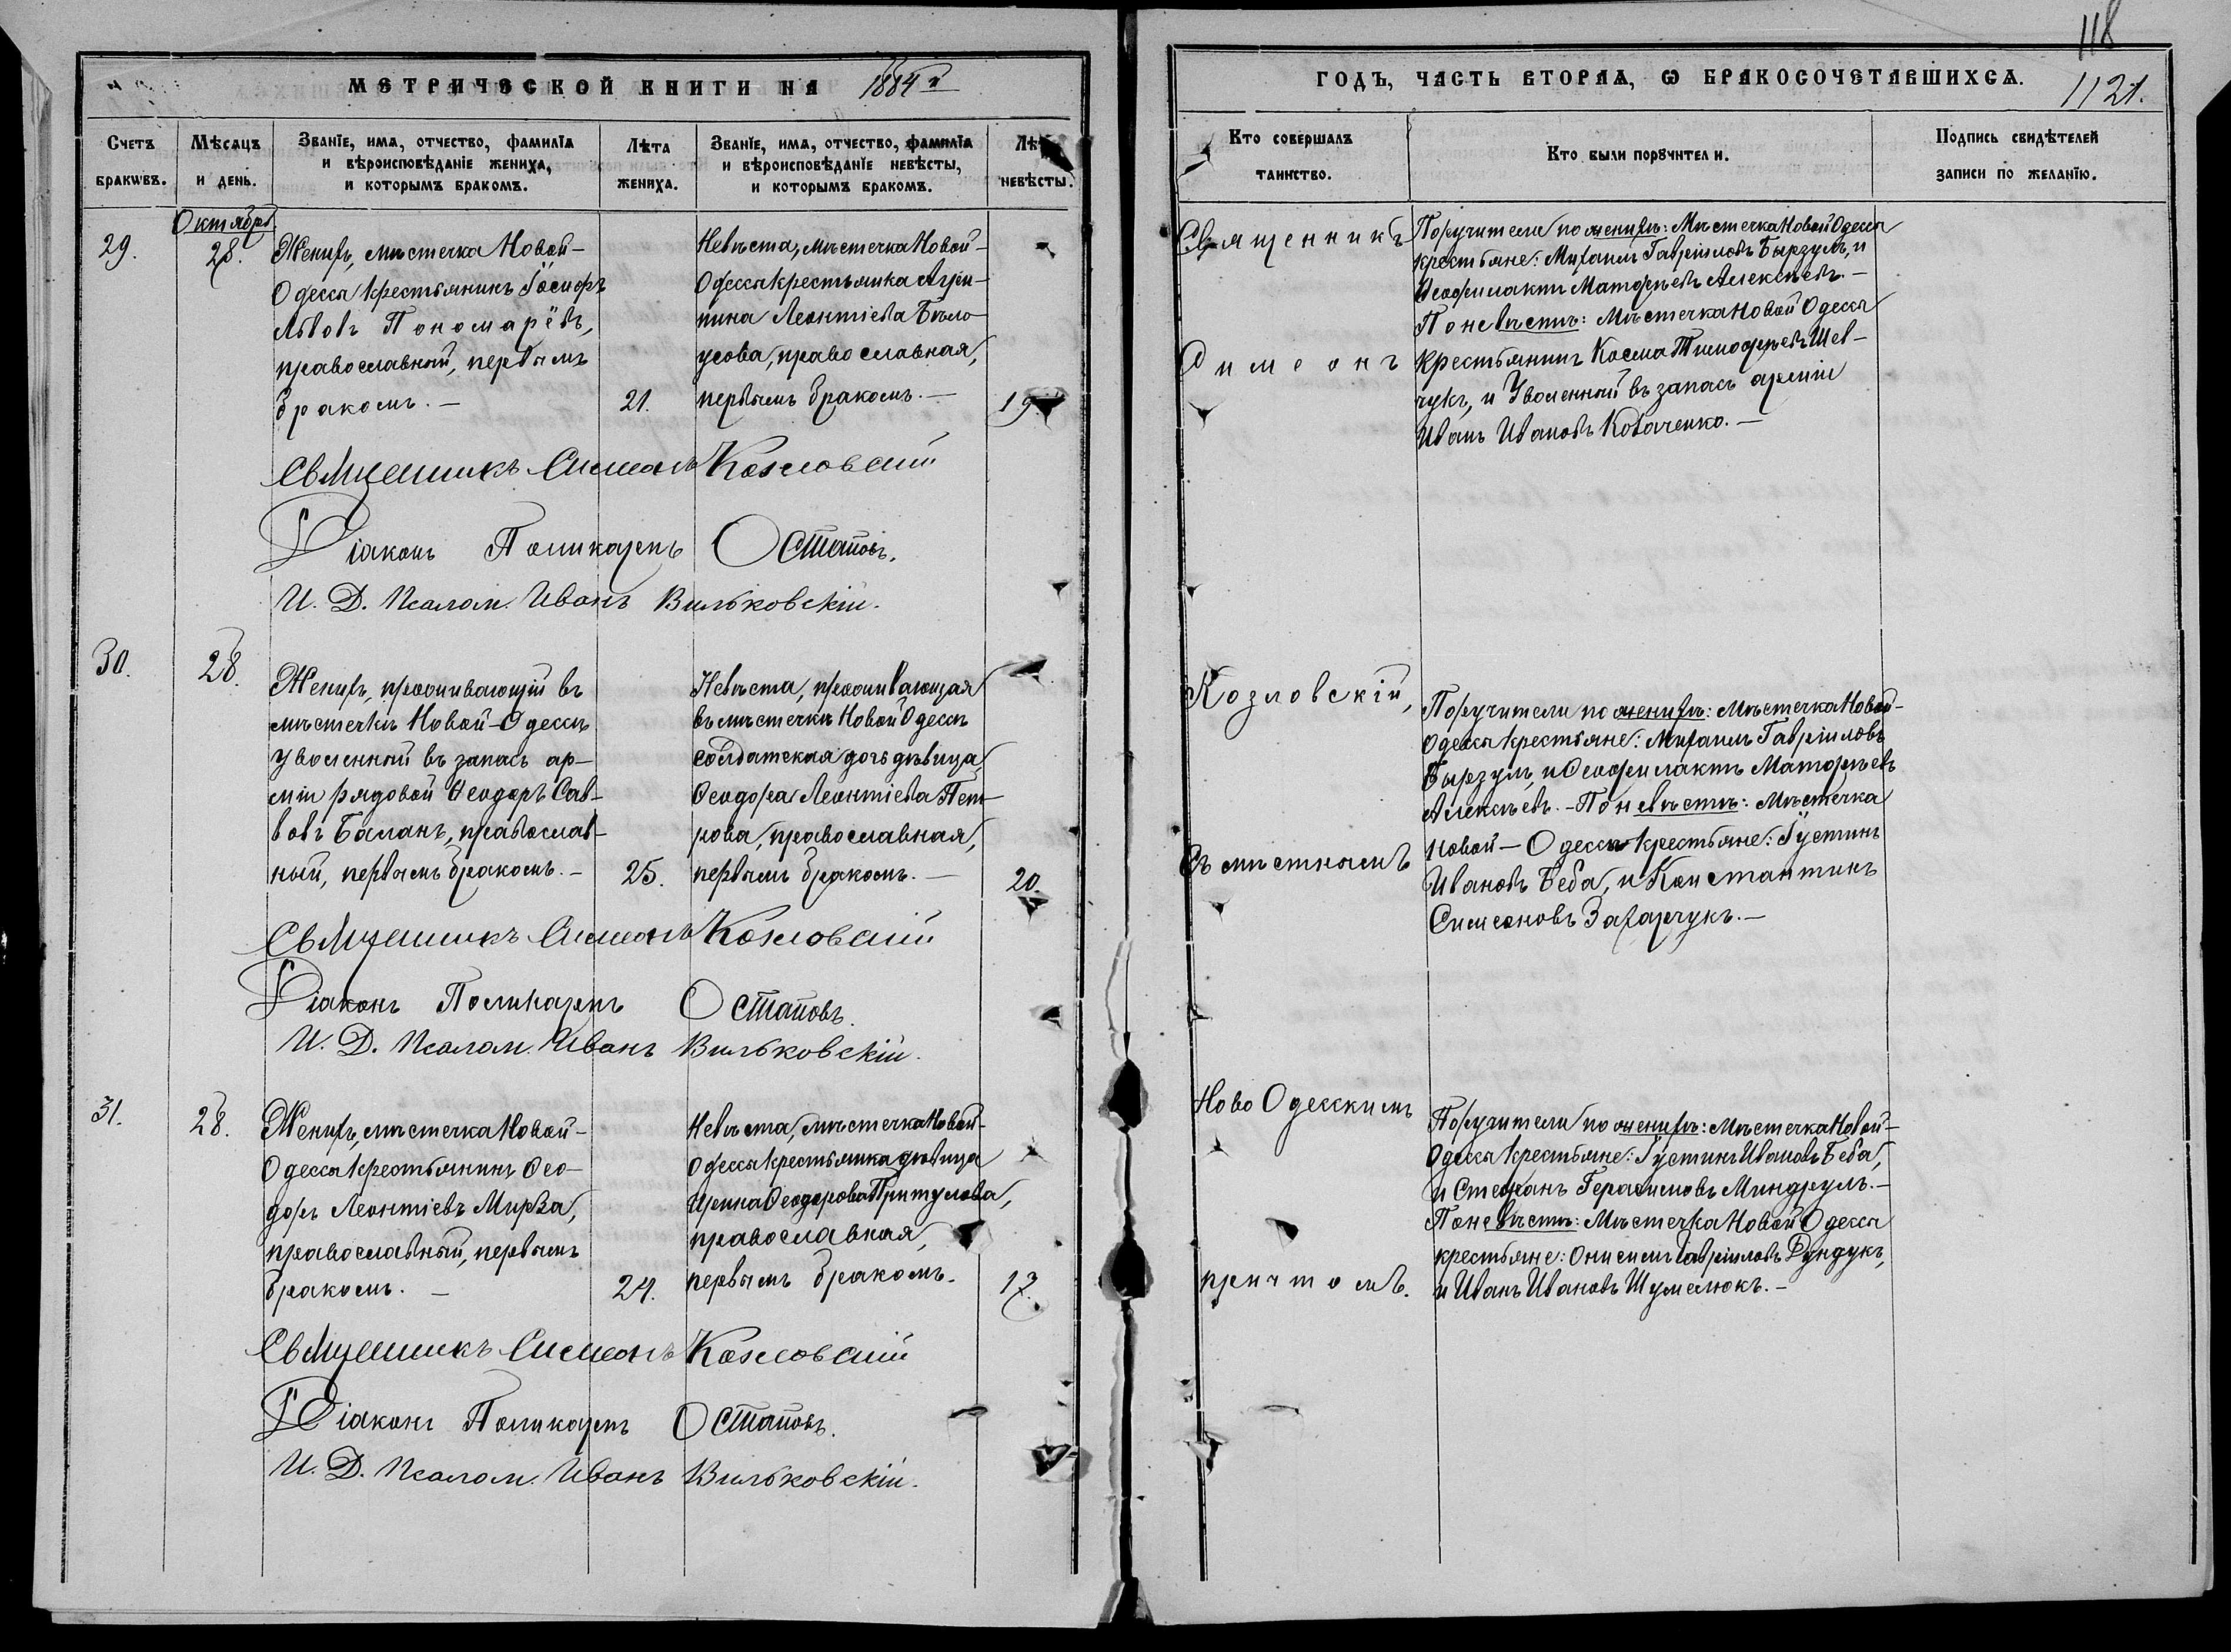 118
МЕТРИЧЕСКОЙ КНИГИ НА 1884 й
ГОДЪ, ЧАСТЬ ВТОРАЯ, Ѡ БРАКОСОЧЕТАВШИХСЯ.
1121.
Счетъ браковъ.
Мѣсяцъ и день.
Званіе, имя, отчество, фамилія
и вѣроисповѣданіе жениха,
и которымъ бракомъ.
Лѣта
жениха.
Званіе, имя, отчество, фамилія
и вѣроисповѣданіе невѣсты,
и которымъ бракомъ.
Лѣта
невѣсты.
Кто совершалъ
таинство.
Кто были поручители.
Подпись свидѣтелей
записи по желанію.
Октябрь
29.
28.
Женихъ, мѣстечка Новой-
Одессы крестьянинъ Іосифъ
Львовъ Пономарёвъ,
православный, первымъ
бракомъ. —
21.
Невѣста, мѣстечка Новой-
Одессы крестьянка Агри-
пина Леонтіева Бѣло-
усова, православная,
первымъ бракомъ. —
19.
Священникъ Симеонъ Козловскій
Діаконъ Поликарпъ Остаповъ.
И. Д. Псалом. Иванъ Вильковскій.
30.
28.
Женихъ, проживающій въ
мѣстечкѣ Новой-Одессѣ
уволенный въ запасъ ар-
міи рядовой Ѳеодоръ Сав-
вовъ Баланъ, православ-
ный, первымъ бракомъ. —
25.
Невѣста, проживающая
въ мѣстечкѣ Новой Одессѣ
солдатская дочь дѣвица
Ѳеодора Леонтіева Пет-
рова, православная,
первымъ бракомъ. —
20.
Священникъ Симеонъ Козловскій
Діаконъ Поликарпъ Остаповъ.
И. Д. Псалом. Иванъ Вильковскій.
31.
28.
Женихъ, мѣстечка Новой-
Одессы крестьянинъ Ѳео-
доръ Леонтіевъ Мирза,
православный, первымъ
бракомъ. —
24.
Невѣста, мѣстечка Новой-
Одессы крестьянка дѣвица
Ирина Ѳеодорова Притулова,
православная,
первымъ бракомъ.
17.
Священникъ Симеонъ Козловскій
Діаконъ Поликарпъ Остаповъ.
И. Д. Псалом. Иванъ Вильковскій.
Священникъ
Симеонъ
Козловскій,
съ мѣстнымъ
Ново Одесскимъ
причтомъ.
Поручители по женихѣ: Мѣстечка Новой Одессы
крестьяне: Михаилъ Гавріиловъ Бырзулъ, и
Ѳеофилактъ Матфѣевъ Алексѣевъ. —
По невѣстѣ: Мѣстечка Новой Одессы
крестьянинъ Косма Тимофѣевъ Шев-
чукъ, и Уволенный въ запасъ арміи
Иванъ Ивановъ Коваченко. —
Поручители по женихѣ: Мѣстечка Новой-
Одессы крестьяне: Михаилъ Гавріиловъ
Бырзулъ, и Ѳеофилактъ Матфѣевъ
Алексѣевъ. — По невѣстѣ: Мѣстечка
Новой — Одессы крестьяне: Іустинъ
Ивановъ Беба, и Константинъ
Симеоновъ Захарчукъ. —
Поручители по женихѣ: Мѣстечка Новой-
Одессы крестьяне: Іустинъ Ивановъ Беба,
и Стефанъ Герасимовъ Миндрулъ. —
По невѣстѣ: Мѣстечка Новой Одессы
крестьяне: Онисимъ Гавріиловъ Дундукъ,
и Иванъ Ивановъ Шумелюкъ. —